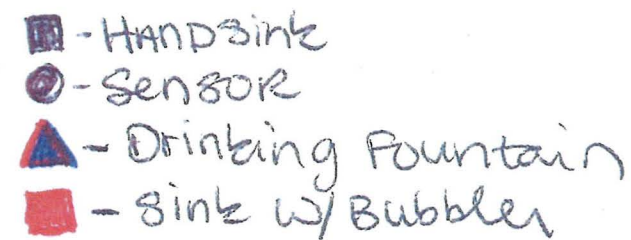 - HANDSink
- SenSOR
- Drinking Fountain
- Sink w/ Bubbler